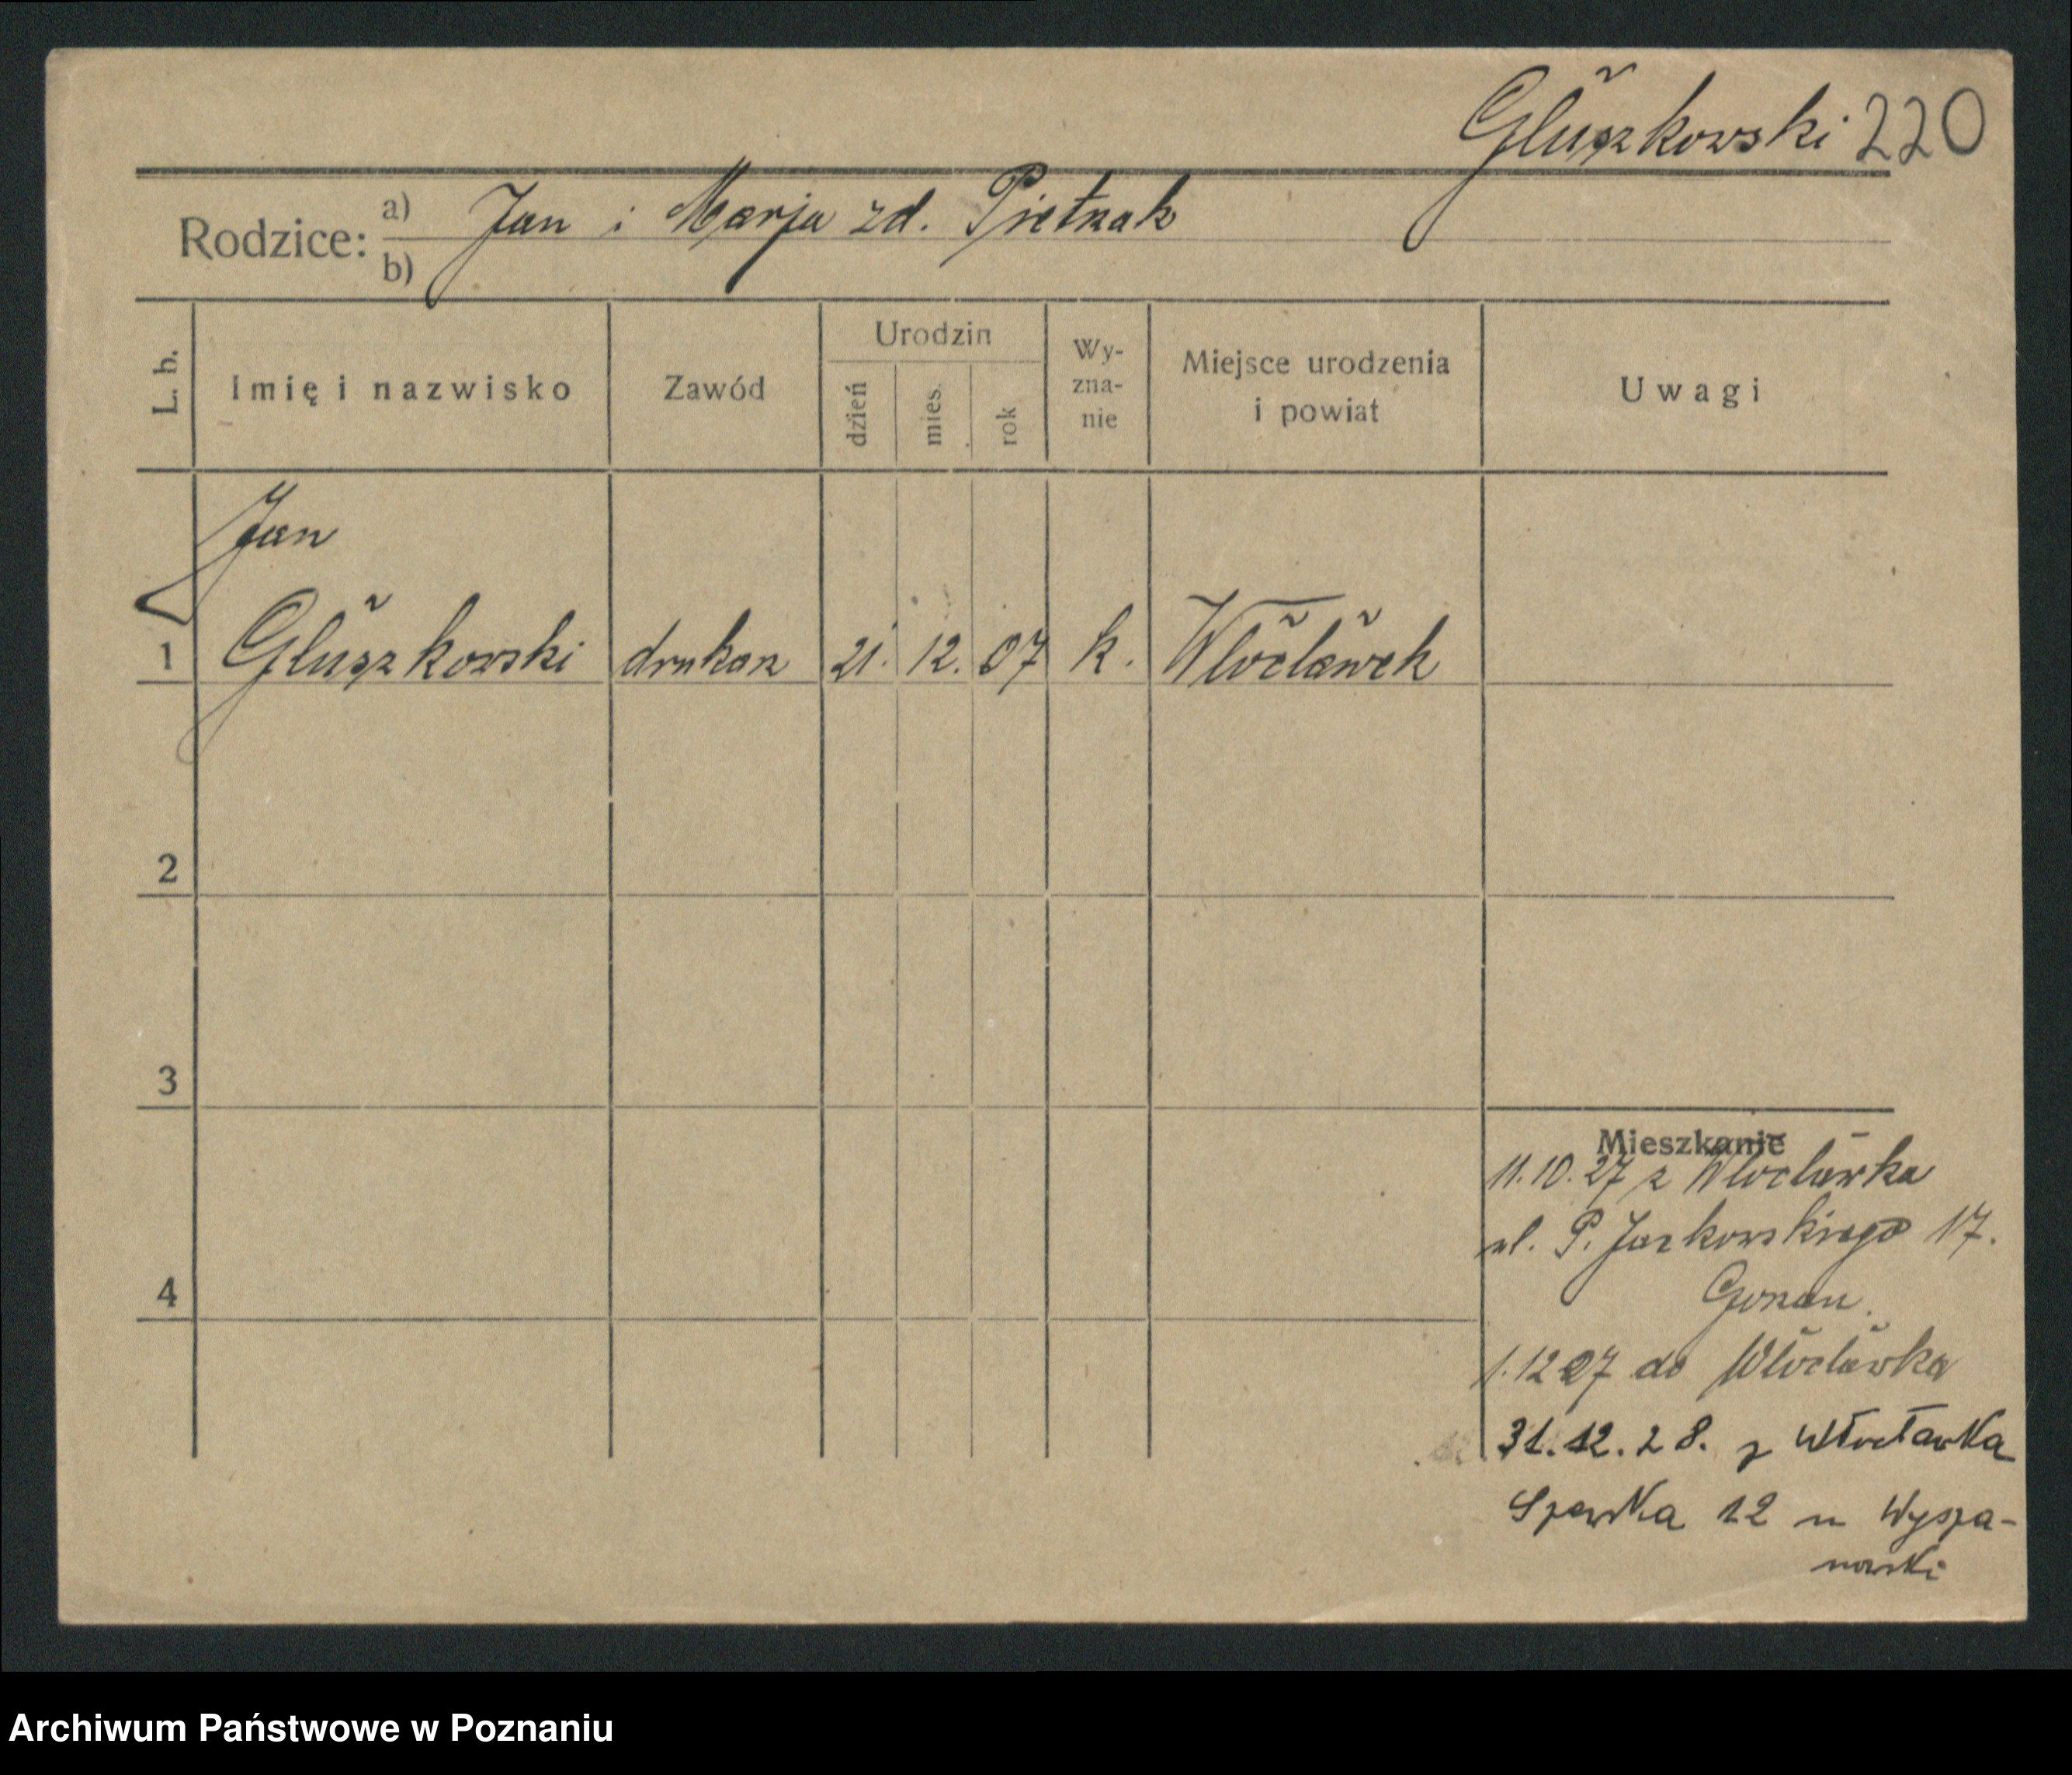 Głuszkowski 220
Rodzice: a) Jan i Marja zd. Pietrzak
b)
L. b. Imię i nazwisko Zawód Urodzin dzień mies. rok Wy-zna-nie Miejsce urodzenia i powiat Uwagi
Jan
1 Głuszkowski drukarz 21. 12. 07 k. Włocławek
2
3
4
Mieszkanie
11.10.27 z Włocławka
ul. P. Jackowskiego 17.
1.12 27 do Włocławka
31.12.28. z Włocławka
Szewska 12 u Wysza-
nowski
Archiwum Państwowe w Poznaniu